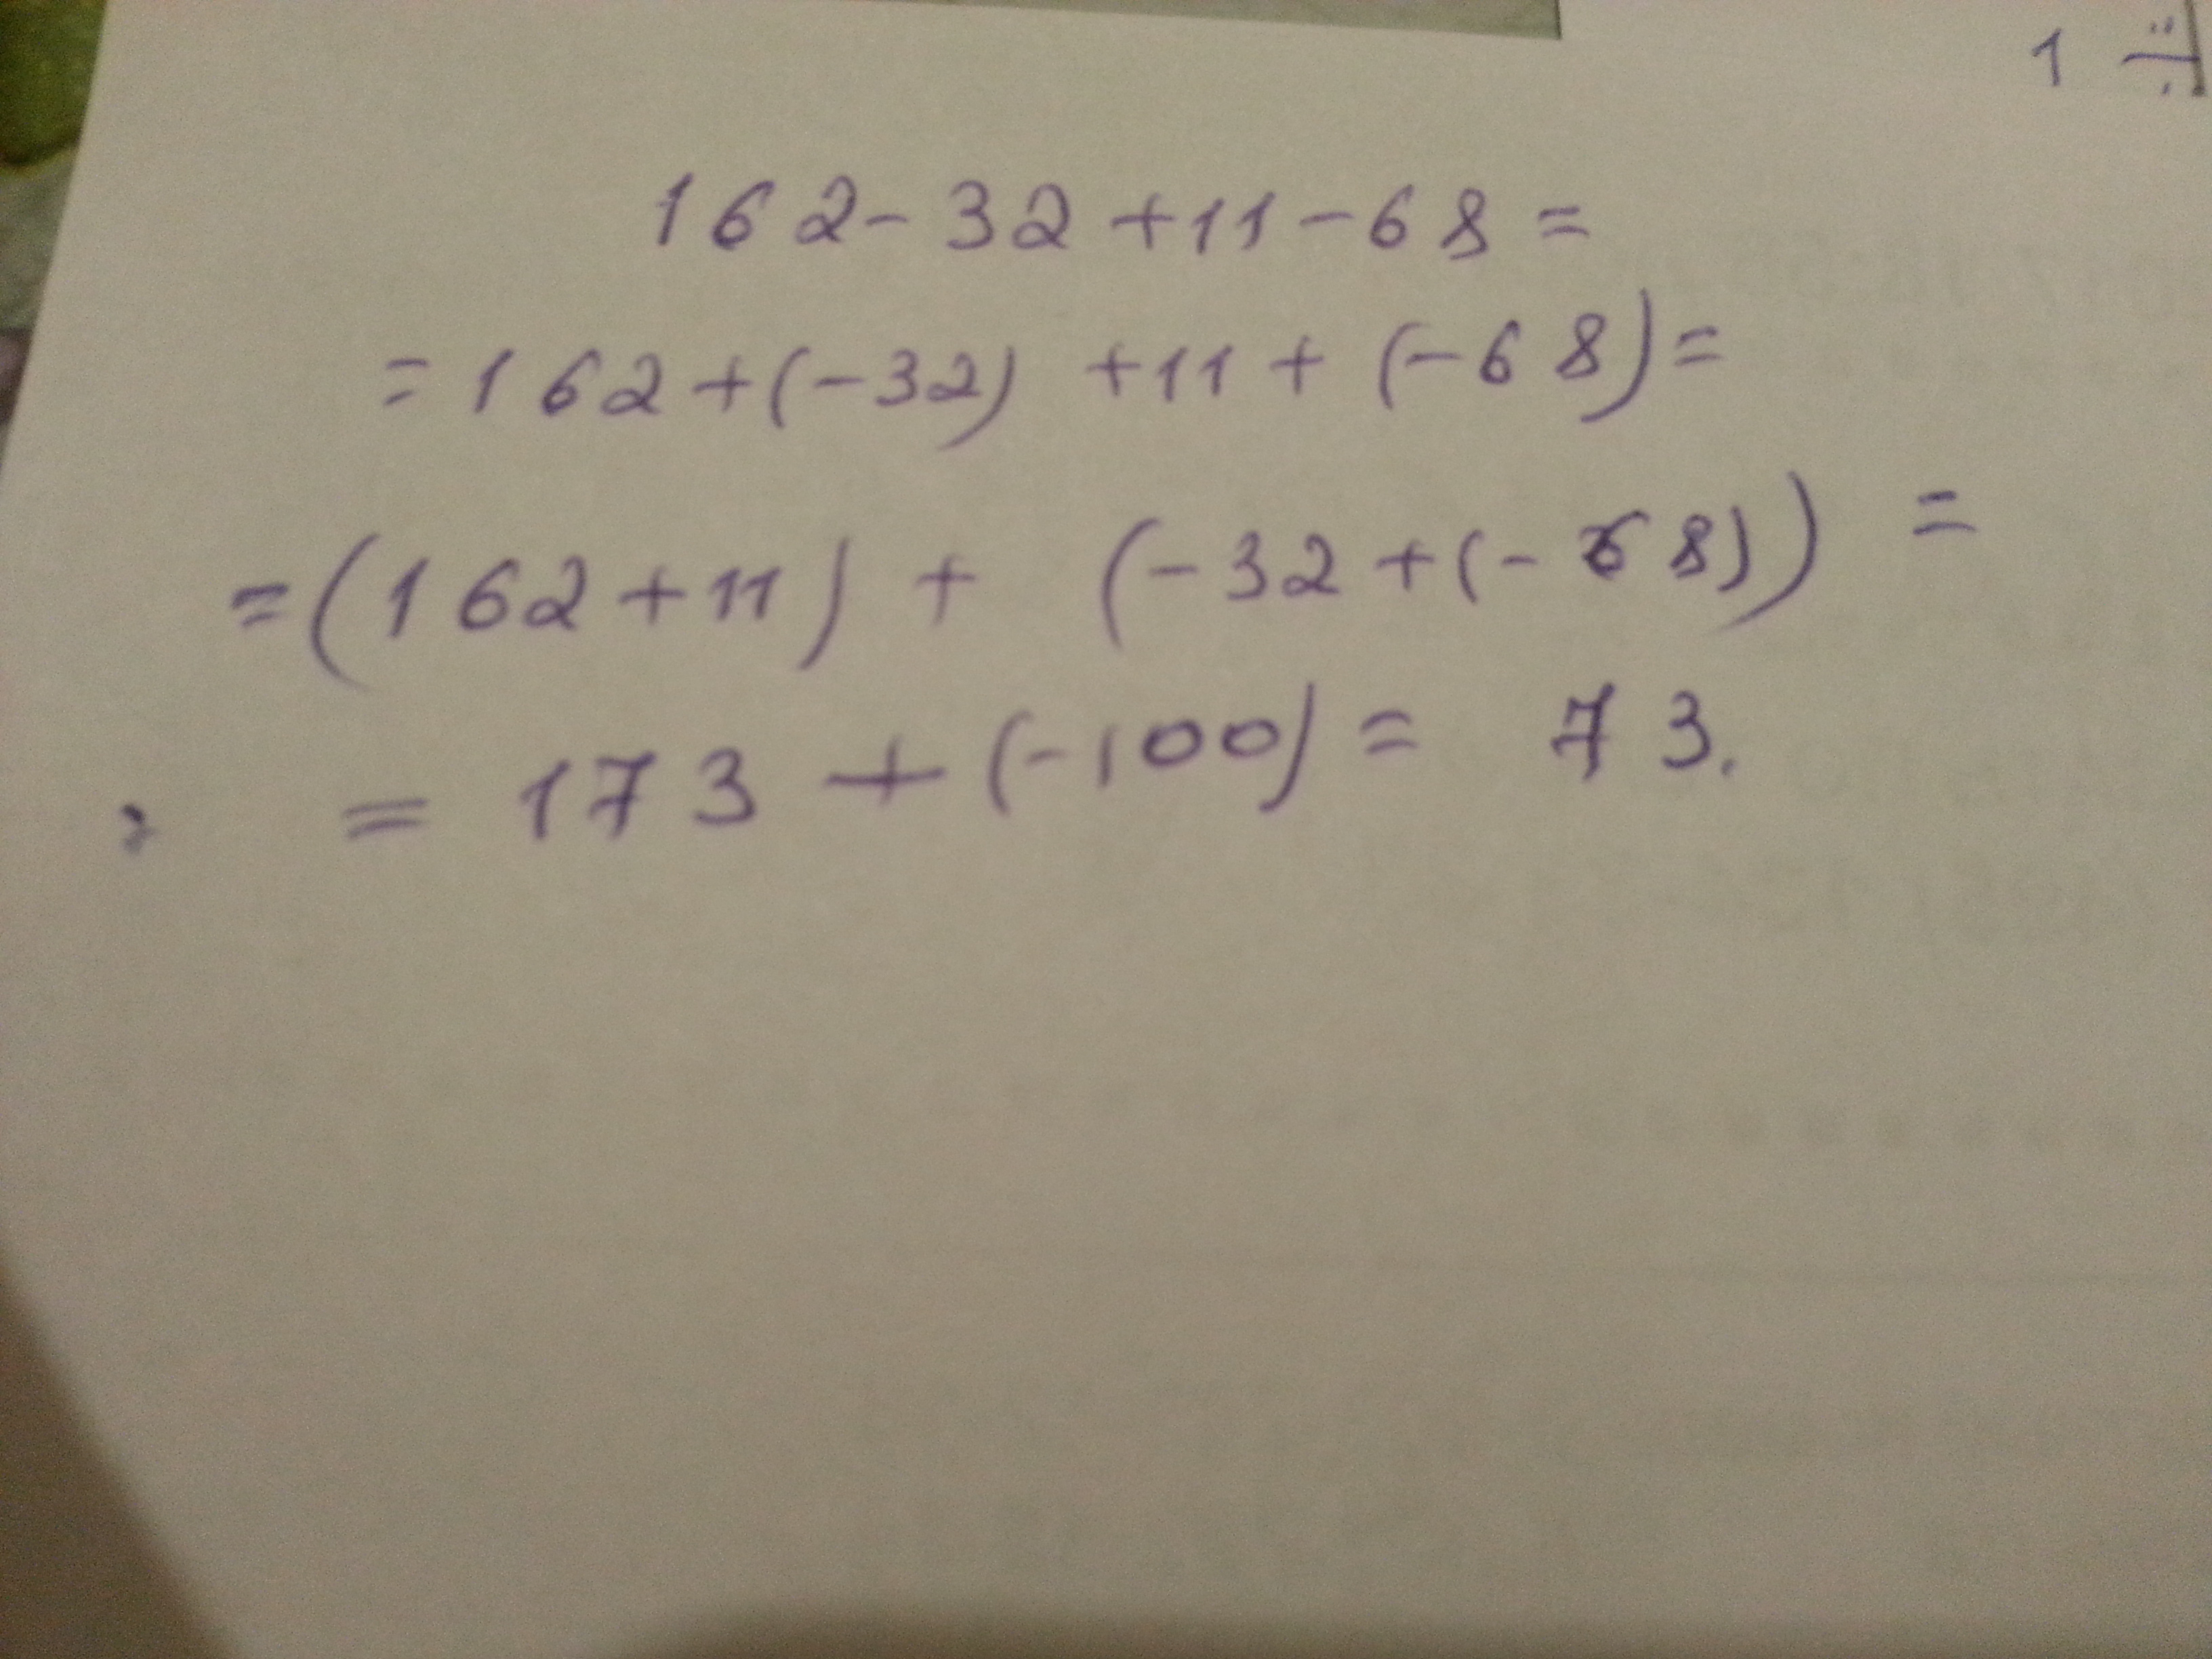 1
162-32+11-68=
=162+(-32)+11+(-68)=
=(162+11)+(-32+(-68))=
=173+(-100)=73.